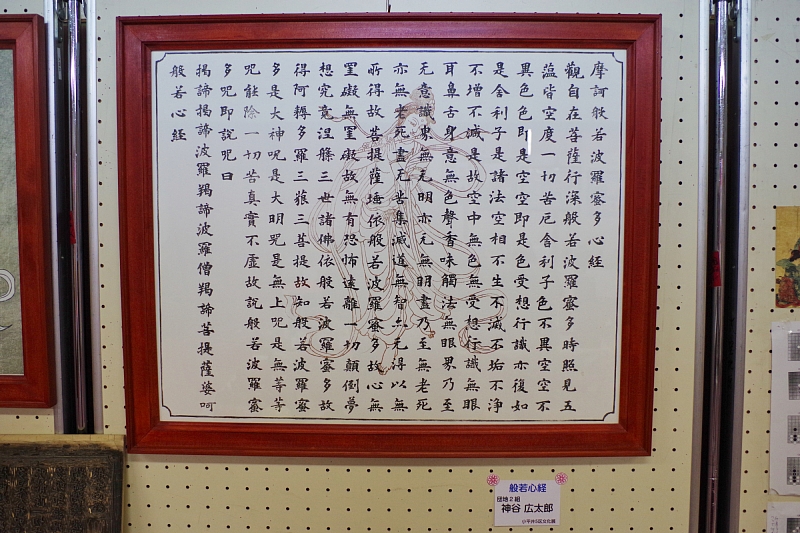 摩訶般若波羅蜜多心経
觀自在菩薩行深般若波羅蜜多時照見五
蘊皆空度一切苦厄舎利子色不異空空不
異色色即是空空即是色受想行識亦復如
是舎利子是諸法空相不生不滅不垢不浄
不増不減是故空中無色無受想行識無眼
耳鼻舌身意無色聲香味觸法無眼界乃至
无意識界無无明亦无無明盡乃至無老死
亦無老死盡无苦集滅道無智亦无得以無
所得故菩提薩埵依般若波羅蜜多故心無
罣礙無罣礙故無有恐怖遠離一切顛倒夢
想究竟涅槃三世諸佛依般若波羅蜜多故
得阿耨多羅三藐三菩提故知般若波羅蜜
多是大神呪是大明呪是無上呪是無等等
呪能除一切苦真實不虚故説般若波羅蜜
多呪即説呪曰
揭諦揭諦波羅羯諦波羅僧羯諦菩提薩婆呵
般若心経
般若心経
団地2組
神谷 広太郎
小平井5区文化展